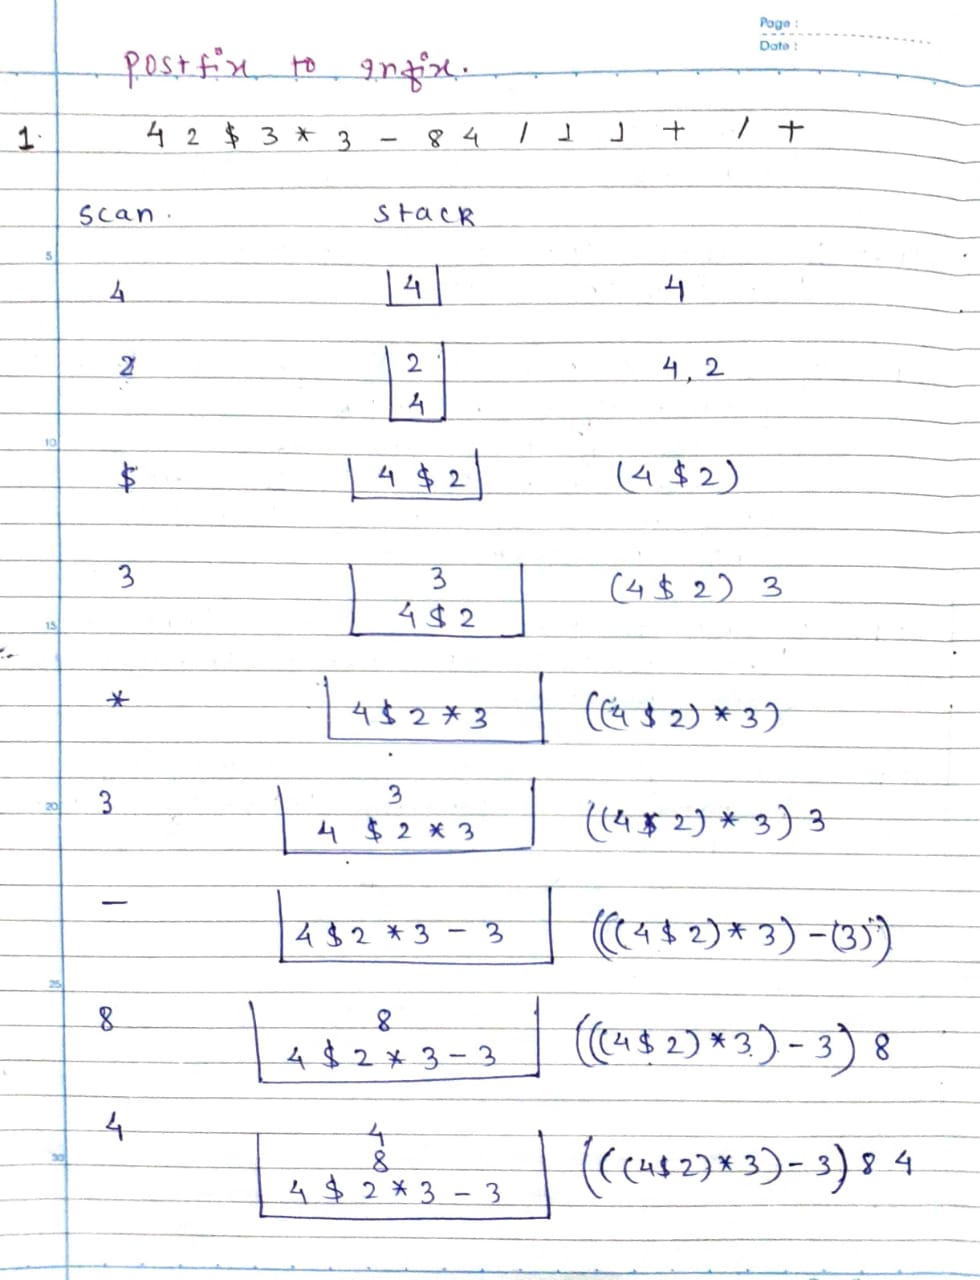 Page :
Date :
Postfix to Infix.
1. 4 2 $ 3 * 3 - 8 4 / 1 1 + / +
Scan. Stack
5
4 4 4
2 2 4, 2
4
10
$ 4 $ 2 (4 $ 2)
3 3 (4 $ 2) 3
4 $ 2
15
* 4 $ 2 * 3 ((4 $ 2) * 3)
3 3 ((4 $ 2) * 3) 3
20
4 $ 2 * 3
- 4 $ 2 * 3 - 3 (((4 $ 2) * 3) - (3))
25
8 8 (((4 $ 2) * 3) - 3) 8
4 $ 2 * 3 - 3
4 4 (((4 $ 2) * 3) - 3) 8 4
8
30
4 $ 2 * 3 - 3